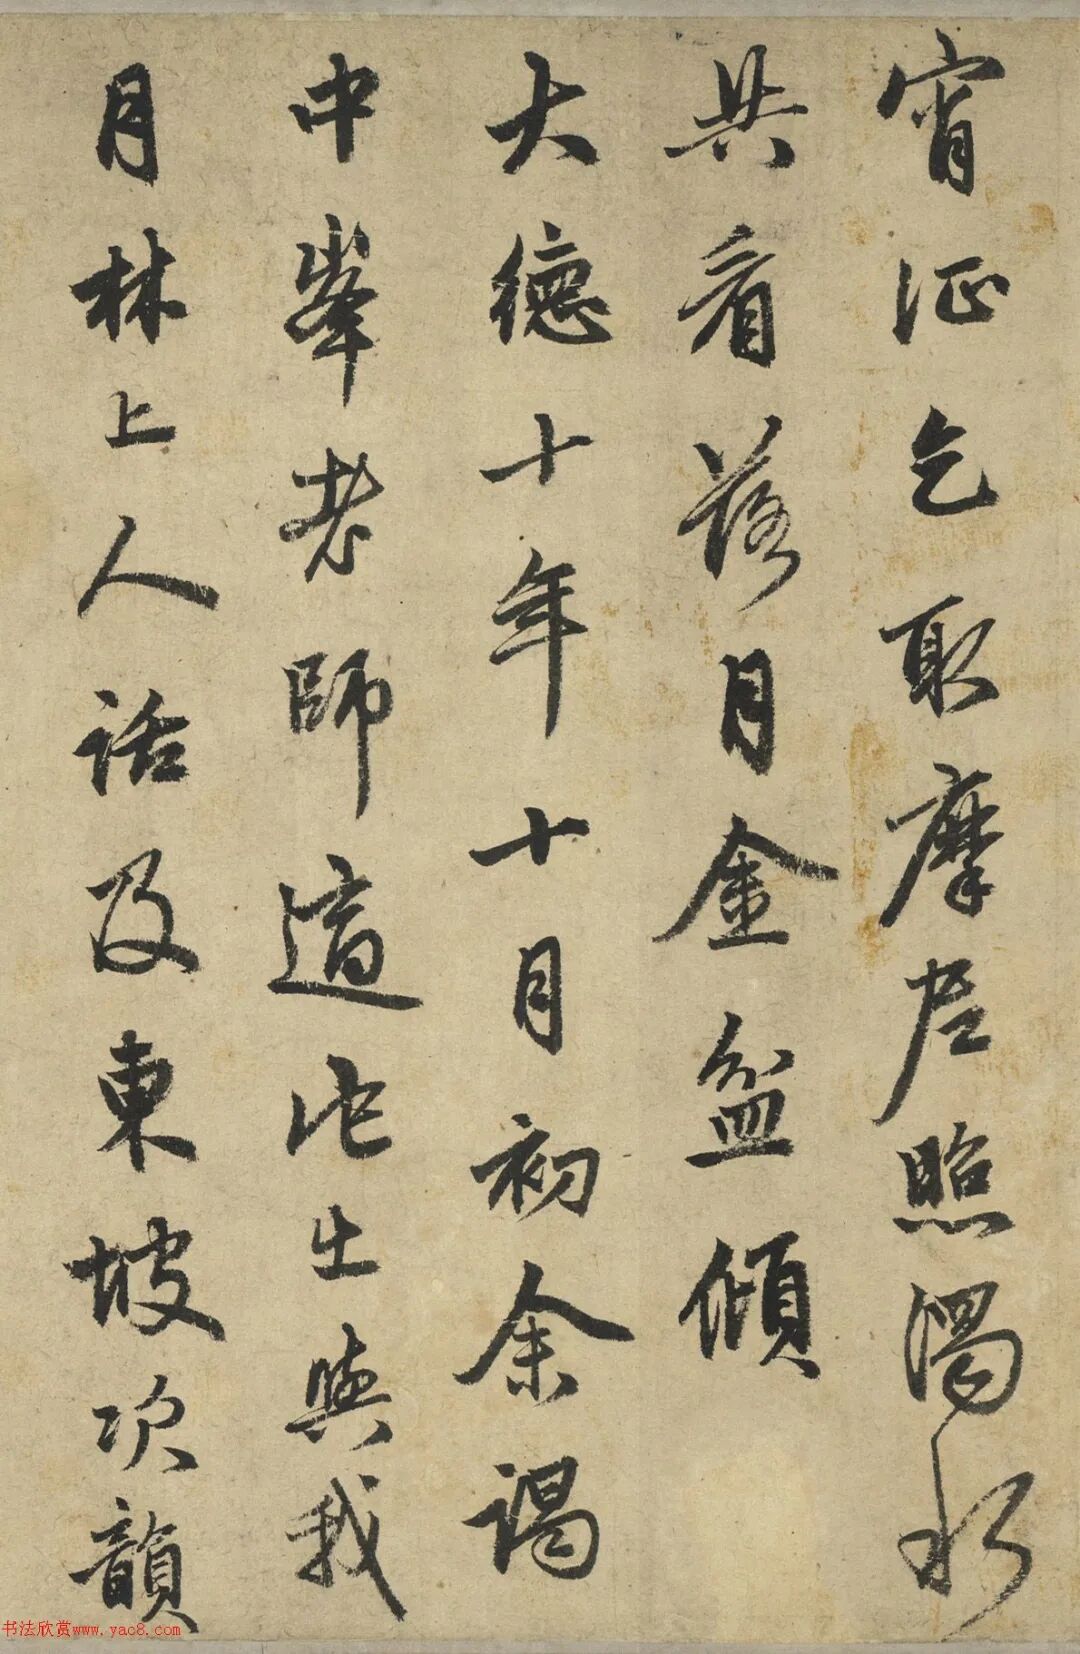 宵征乞取摩尼照濁水
共看落月金盆傾
大德十年十月初余謁
中峯老師道他出與我
月林上人話及東坡次韻
书法欣赏www.yac8.com